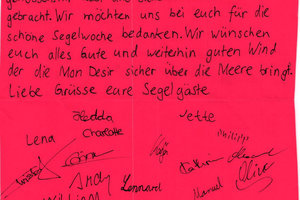 gebracht. Wir möchten uns bei euch für die
schöne Segelwoche bedanken. Wir wünschen
euch alles Gute und weiterhin guten Wind
der die Mon Desir sicher über die Meere bringt.
Liebe Grüsse eure Segelgäste
Hedda Jette
Lena Charlotte Philipp
Kathrin
Andy Lennard Manuel Oliver
William